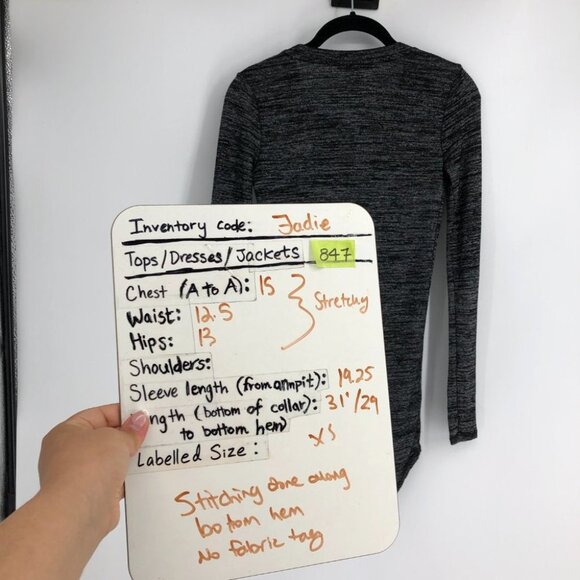 Inventory code: Jadie
Tops/Dresses/Jackets 847
Chest (A to A): 15
Waist: 12.5
Hips: 13
Stretchy
Shoulders:
Sleeve length (from armpit): 19.25
ngth (bottom of collar): 31"/29
to bottom hem)
Labelled Size: XS
Stitching done along
bottom hem
No fabric tag